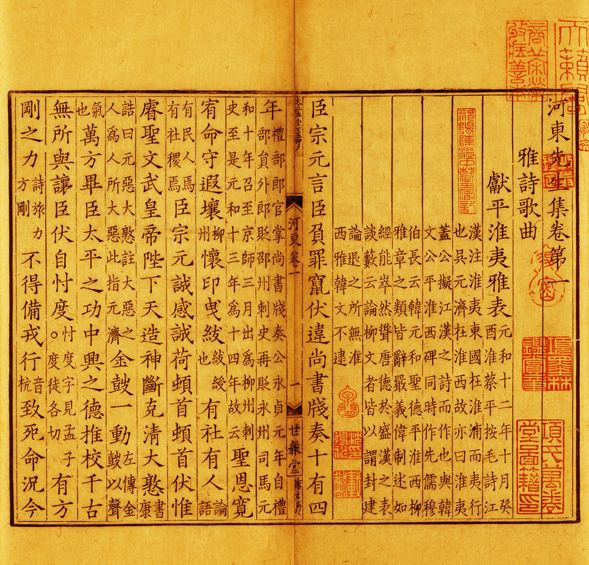 河東先生集卷第一
雅詩歌曲
獻平淮夷雅表元和十二年十月癸酉淮蔡平按毛詩江
漢注淮夷東國在淮浦而夷行也吳元濟在淮西故亦曰淮夷
蓋公擬江漢之詩而作也與韓文公平淮西碑同時作先儒穆
伯長云韓元和聖德平淮西柳雅章之類皆辭嚴義偉制述如
經能崒然聳唐德於盛漢之表談藪云論柳文者皆以謂封建
論退之所無淮西雅韓文不逮
臣宗元言臣負罪竄伏違尚書牋奏十有四
河東卷一
一
世綵堂
年禮部郎官掌尚書牋奏公永貞元年自禮部員外郎貶邵州刺史再貶永州司馬元
和十年召至京師三月出為柳州刺史至是元和十三年為十四年故云聖恩寬
宥命守遐壤柳州懷印曳紱紱綬也有社有人論語
有民人焉有社稷焉臣宗元誠感誠荷頓首頓首伏惟
睿聖文武皇帝陛下天造神斷克清大憝書康
誥曰元惡大憝註大惡之人為人所大惡此指元濟金鼓一動左傳金鼓以聲
氣也萬方畢臣太平之功中興之德推校千古
無所與讓臣伏自忖度。忖度字見孟子度徒各切有方
剛之力詩旅力方剛不得備戎行音杭致死命況今